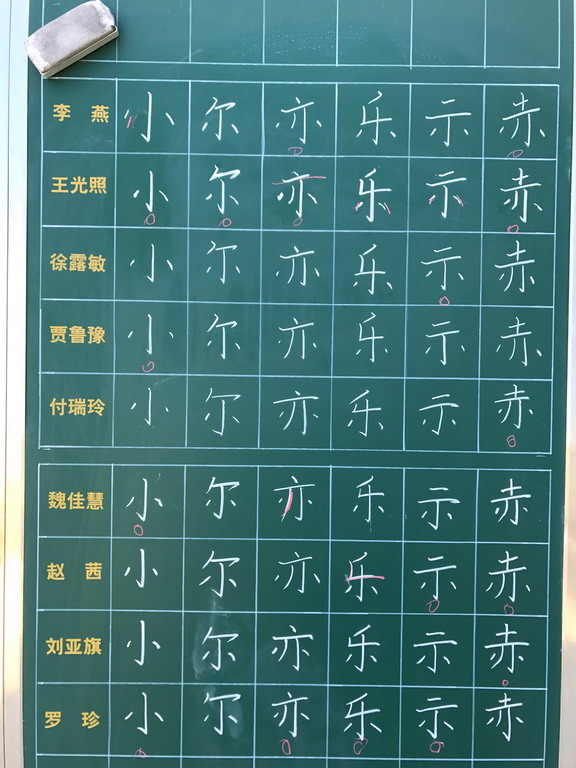 李燕 小 尔 亦 乐 示 赤
王光照 小 尔 亦 乐 示 赤
徐露敏 小 尔 亦 乐 示 赤
贾鲁豫 小 尔 亦 乐 示 赤
付瑞玲 小 尔 亦 乐 示 赤
魏佳慧 小 尔 亦 乐 示 赤
赵茜 小 尔 亦 乐 示 赤
刘亚旗 小 尔 亦 乐 示 赤
罗珍 小 尔 亦 乐 示 赤